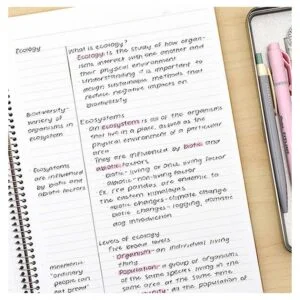 Ecology
What is ecology?
Ecology is the study of how organ-
isms interact with one another and
their physical environment
Understanding it is important to
design sustainable methods that
reduce negative impacts on
biodiversity
Biodiversity-
variety of
organisms in
ecosystem
Ecosystems
An ecosystem is all of the organisms
that live in a place, as well as the
physical environment of a particular
area
They are influenced by biotic and
abiotic factors
biotic- living or once living factor
abiotic-non-living factor
Ex. red pandas are endemic to
the eastern Himalayas
abiotic changes-climate change
biotic changes- logging, domestic
dog introduction
Ecosystems
are influenced
by biotic and
abiotic factors
Levels of ecology
Five broad levels
Organism- an individual living
thing
Population- a group of organisms
of the same species living in the
same
all the populations of
mnemonic
"ordinary
people can
eat bread"